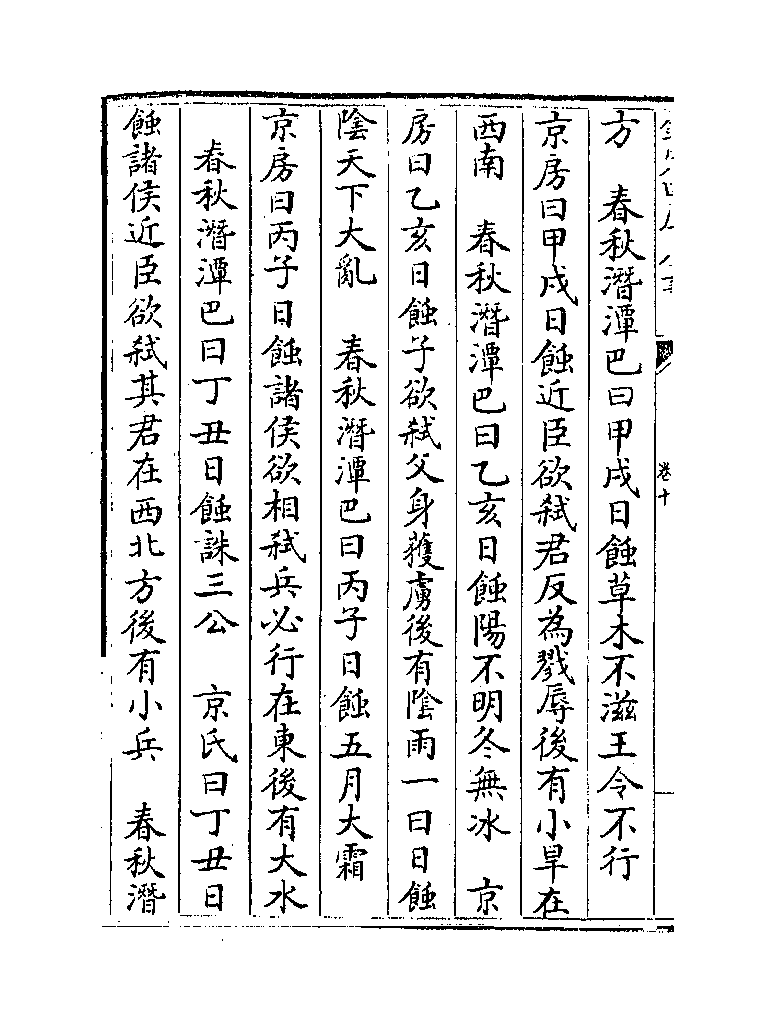 方　春秋潛潭巴曰甲戌日蝕草木不滋王令不行
京房曰甲戌日蝕近臣欲弑君反為戮辱後有小旱在
西南　春秋潛潭巴曰乙亥日蝕陽不明冬無冰　京
房曰乙亥日蝕子欲弑父身獲虜後有陰雨一曰日蝕
陰天下大亂　春秋潛潭巴曰丙子日蝕五月大霜
京房曰丙子日蝕諸侯欲相弑兵必行在東後有大水
春秋潛潭巴曰丁丑日蝕誅三公　京氏曰丁丑日
蝕諸侯近臣欲弑其君在西北方後有小兵　春秋潛
卷十